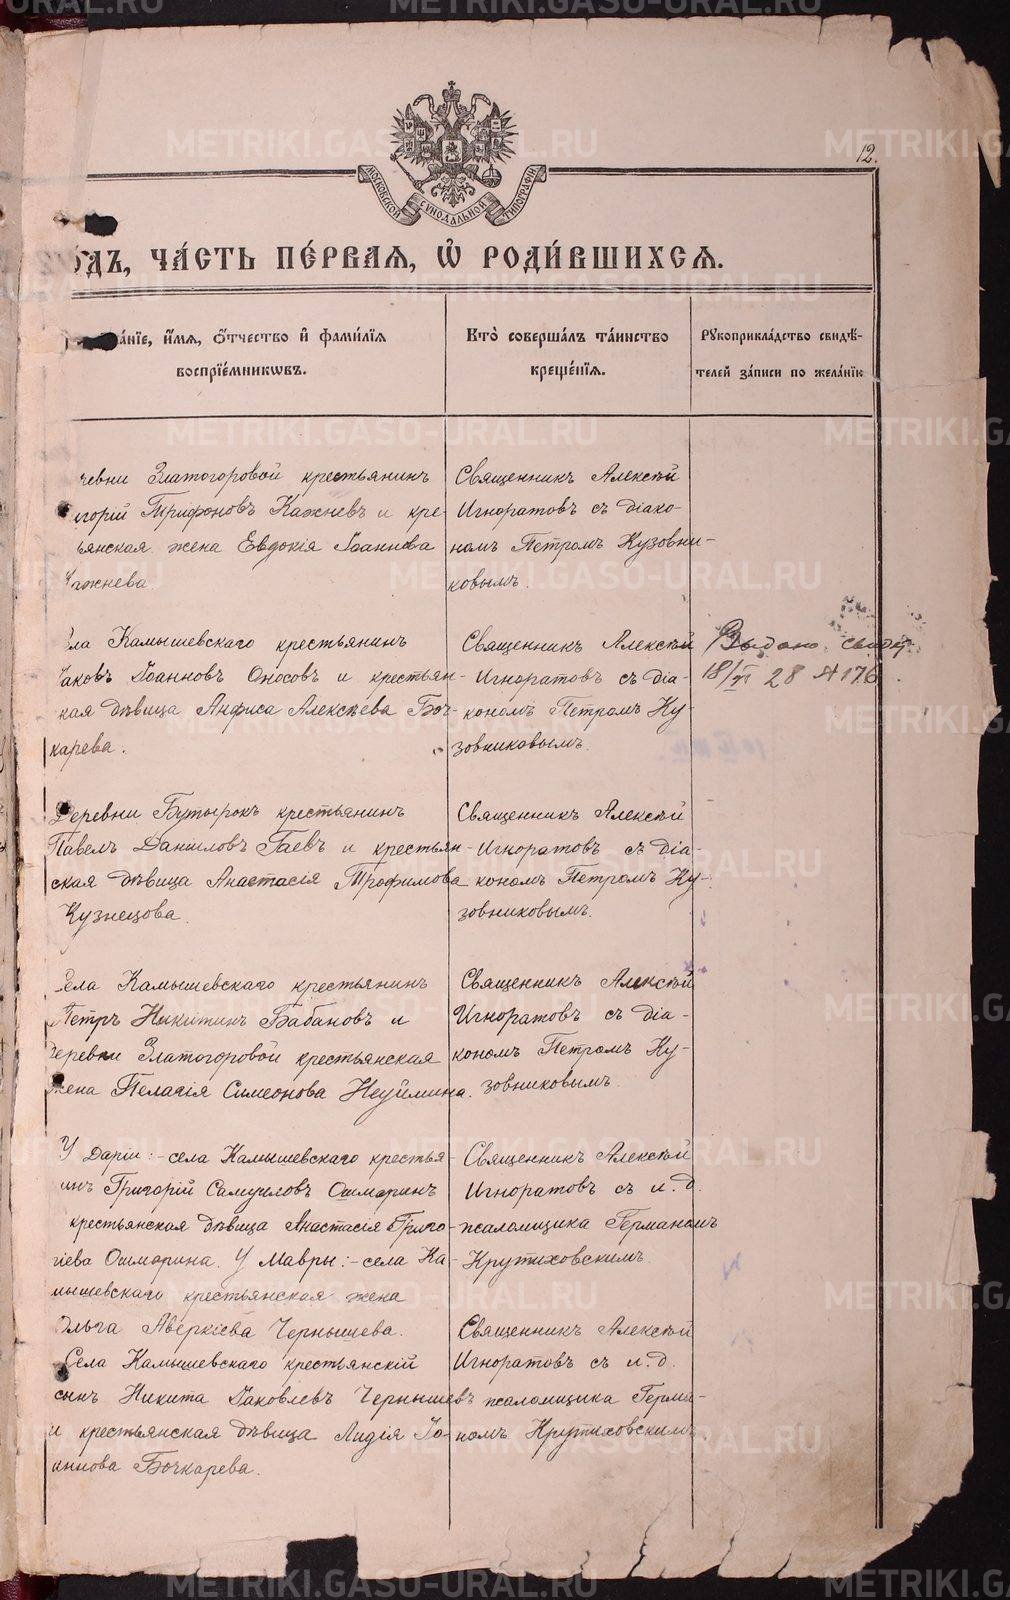 12.
МОСКОВСКОЙ СѴНОДАЛЬНОЙ ТИПОГРАФІИ
ОДЪ, ЧА́СТЬ ПЕ́РВАЯ, Ѡ҆ РОДИ́ВШИХСЯ.
а́нїе, и҆́мя, ѻ҆́тчество и҆ фамі́лїя
воспрїе́мникѡвъ.
Кто̀ соверша́лъ та́инство
креще́нїя.
Рꙋкоприкла́дство свидѣ́-
телей за́писи по жела́нїю
чевни Златогоровой крестьянинъ
игорій Трифоновъ Кажневъ и кре-
ьянская жена Евдокія Іоаннова
Кажнева.
Священникъ Алексѣй
Игноратовъ съ діако-
номъ Петромъ Кузовни-
ковымъ.
ела Камышевскаго крестьянинъ
Іаковъ Іоанновъ Оносовъ и крестьян-
кая дѣвица Анфиса Алексѣева Боч-
карева.
Священникъ Алексѣй
Игноратовъ съ діа-
кономъ Петромъ Ку-
зовниковымъ.
Выдано свидѣт
18/VI 28 № 176.
Деревни Бутырокъ крестьянинъ
Павелъ Даниловъ Гаевъ и крестьян-
ская дѣвица Анастасія Трофимова
Кузнецова.
Священникъ Алексѣй
Игноратовъ съ діа-
кономъ Петромъ Ку-
зовниковымъ.
Села Камышевскаго крестьянинъ
Петръ Никитинъ Бабановъ и
деревни Златогоровой крестьянская
жена Пелагія Симеонова Неуймина.
Священникъ Алексѣй
Игноратовъ съ діа-
кономъ Петромъ Ку-
зовниковымъ.
У Даріи: - села Камышевскаго крестья-
инъ Григорій Самуиловъ Ошмаринъ
крестьянская дѣвица Анастасія Григо-
ріева Ошмарина. У Мавры: - села Ка-
мышевскаго крестьянская жена
Ольга Аверкіева Чернышева.
Священникъ Алексѣй
Игноратовъ съ и. д.
псаломщика Германомъ
Крутиховскимъ.
Села Камышевскаго крестьянскій
сынъ Никита Іаковлевъ Чернышевъ
и крестьянская дѣвица Лидія Іо-
аннова Бочкарева.
Священникъ Алексѣй
Игноратовъ съ и. д.
псаломщика Герма-
номъ Крутиховскимъ.
METRIKI.GASO-URAL.RU